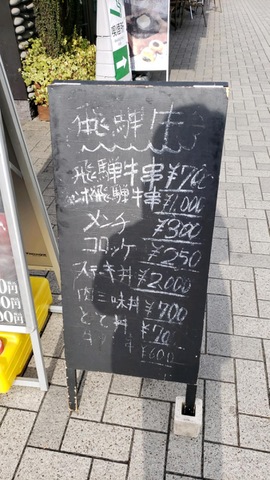 飛騨牛
飛騨牛串 ¥700
飛騨牛串 ¥1,000
メンチ ¥300
コロッケ ¥250
ステーキ丼 ¥2,000
肉三味丼 ¥700
とて丼 ¥70
¥600
円
00円
00円